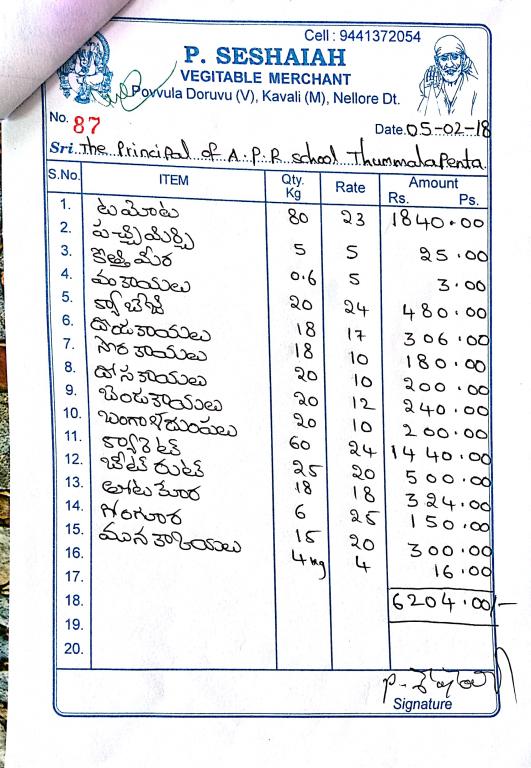 Cell : 9441372054
P. SESHAIAH
VEGITABLE MERCHANT
Povvula Doruvu (V), Kavali (M), Nellore Dt.
No. 87 Date. 05-02-18
Sri. The Principal of A.P.R school Thummalapenta.
S.No. ITEM Qty. Kg Rate Amount Rs. Ps.
1. టమోట 80 23 1840.00
2. పచ్చిమిర్చి 5 5 25.00
3. కొత్తిమీర 0.6 5 3.00
4. వంకాయలు 20 24 480.00
5. క్యాబేజి 18 17 306.00
6. దొండకాయలు 18 10 180.00
7. సొరకాయలు 20 10 200.00
8. దోసకాయలు 20 12 240.00
9. బెండకాయలు 20 10 200.00
10. బంగాళదుంపలు 60 24 1440.00
11. క్యారెట్ 25 20 500.00
12. బీట్ రుట్ 18 18 324.00
13. తోటకూర 6 25 150.00
14. గోంగూర 15 20 300.00
15. మునకాయలు 4 kg 4 16.00
16.
17.
18. 6204.00/-
19.
20.
Signature